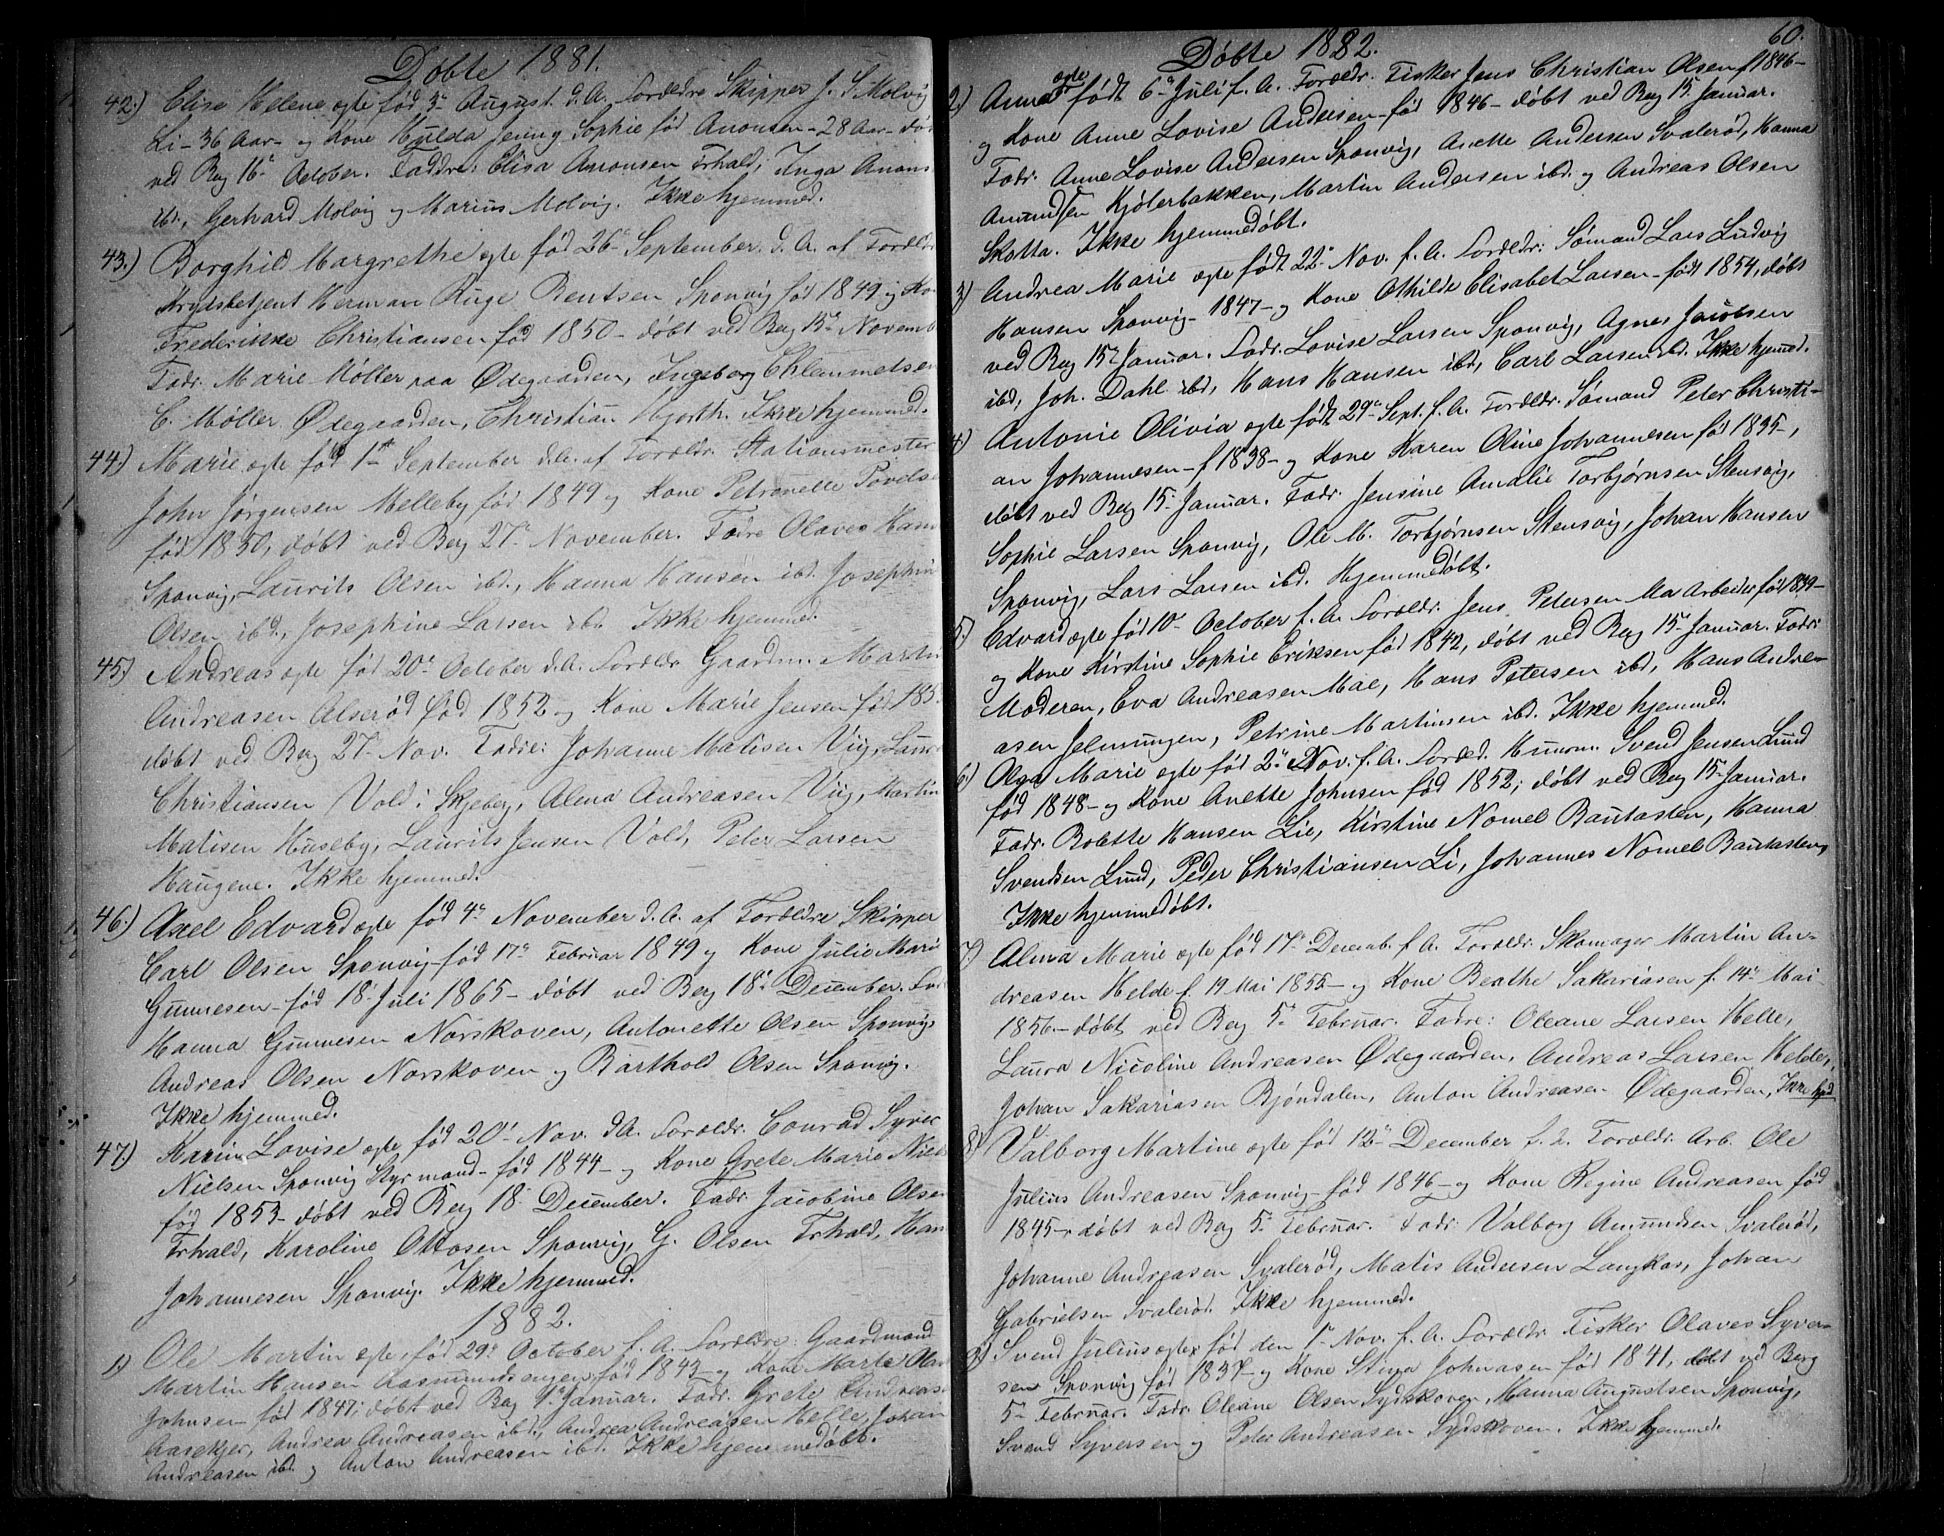 Døbte 1881.
42.) Elise Helene ægte fød 3die August d. A. Forældre Skipper J. S. Molvig
Li - 36 Aar - og Kone Hulda Jenny Sophie fød Anonsen - 28 Aar - døbt
ved Berg 16de October. Faddre: Elisa Anonsen Trhald, Inga Anons
ibd., Gerhard Molvig og Marius Molvig. Ikke hjemmed.
43.) Borghild Margrethe ægte fød 26de September d. A. af Forældr
Krydsbetjent Herman Ruge Bentsen Sponvig fød 1849 og Ko
Frederikke Christiansen fød 1850 - døbt ved Berg 13de Novemb
Fadr. Marie Møller paa Ødegaarden, Ingeborg Chlemmetsen
C. Møller Ødegaarden, Christian Hjorth. Ikke hjemmed.
44.) Marie ægte fød 1ste September d. A. af Forældr. Stationsmester
John Jørgensen Melleby fød 1849 og Kone Petronelle Povelse
fød 1850, døbt ved Berg 27de November. Fadre Olaves Han
Sponvig, Laurits Olsen ibd., Hanna Hansen ibd. Josephin
Olsen ibd., Josephine Larsen ibd. Ikke hjemmed.
45.) Andreas ægte fød 20de October d. A. Forældr. Gaardm. Martin
Andreasen Alserød fød 1852 og Kone Marie Jensen fød 185
døbt ved Berg 27de Nov. Fadre: Johanne Matisen Viig, Laur
Christiansen Vold i Skjeberg, Alma Andreasen Viig, Martin
Matisen Huseby, Laurits Jensen Vold, Peter Larsen
Haugene. Ikke hjemmed.
46.) Axel Edvard ægte fød 4de November d. A. af Forældre Skipper
Carl Olsen Sponvig fød 17de Februar 1849 og Kone Julie Mari
Gunnesen - fød 18 Juli 1865 - døbt ved Berg 18de December. Fad
Hanna Gunnesen Norskoven, Antonette Olsen Sponvig,
Andreas Olsen Norskoven og Barthold Olsen Sponvig.
Ikke hjemmed.
47.) Karin Lovise ægte fød 20de Nov. d. A. Forældr. Conrad Syver
Nielsen Sponvig Styrmand - fød 1844 - og Kone Grete Marie Niels
fød 1853 - døbt ved Berg 18 December. Fadr. Jacobine Olsen
Trhald, Karoline Ottosen Sponvig, G. Olsen Trhald, Han
Johannesen Sponvig. Ikke hjemmed.
1882.
1.) Ole Martin ægte, fød 29de October f. A. Forældre: Gaardmand
Martin Hansen Aasmundsengen fød 1843 - og Kone Marte Ola
Johnsen fød 1847; døbt ved Berg 1ste Januar. Fadr. Grete Andreas
Aasekjer, Andrea Andreasen ibd., Andrea Andreasen Helle, Johan
Andreasen ibd. og Anton Andreasen ibd. Ikke hjemmedøbt.
60.
Døbte 1882.
2.) Anna ægte født 6de Juli f. A. Forældr. Fisker Jens Christian Olsen f 1846 -
og Kone Anne Lovise Andersen - fød 1846 - døbt ved Berg 15 Januar.
Fadr. Anne Lovise Andersen Sponvig, Anette Andersen Svalerød, Hanna
Amundsen Kjølerbakken, Martin Andersen ibd. og Andreas Olsen
Skotta. Ikke hjemmedøbt.
3.) Andrea Marie ægte født 22de Nov. f. A. Forældr: Sømand Lars Ludvig
Hansen Sponvig - 1847 - og Kone Othilde Elisabet Larsen - født 1854, døbt
ved Berg 15de Januar. Fadr. Lovise Larsen Sponvig, Agnes Jacobsen
ibd, Joh. Dahl ibd, Hans Hansen ibd, Carl Larsen ibd. Ikke hjemmed.
4.) Antonie Olivia ægte født 29de Sept. f. A. Forældr. Sømand Peter Christi-
an Johannesen - f 1838 - og Kone Karen Oline Johannesen fød 1835 -,
døbt ved Berg 15 Januar. Fadr. Jensine Amalie Torbjørnsen Stensvig,
Sophie Larsen Sponvig, Ole M. Torbjørnsen Stensvig, Johan Hansen
Sponvig, Lars Larsen ibd. Hjemmedøbt.
5.) Edvard ægte fød 10de October f. A. Forældr. Jens Petersen Ma Arbeider fød 1839 -
og Kone Kirstine Sophie Eriksen fød 1842, døbt ved Berg 15de Januar. Fadr:
Moderen, Eva Andreasen Mae, Hans Petersen ibd, Hans Andre-
asen Jelmungen, Petrine Martinsen ibd. Ikke hjemmed.
6.) Olga Marie ægte fød 2de Nov. f. A. Foræld. Husm. Svend Jensen Lund
fød 1848 - og Kone Anette Johnsen fød 1852; døbt ved Berg 15de Januar.
Fadr. Bolette Hansen Lie, Kirstine Nomel Bautasten, Hanna
Svendsen Lund, Peder Christiansen Li, Johannes Nomel Bautasten,
Ikke hjemmedøbt.
7.) Alma Marie ægte fød 17de Decemb. f. A. Forældr. Skomager Martin An-
dreasen Helde f. 19 Mai 1852 - og Kone Berthe Sakariasen f. 14de Mai
1856 - døbt ved Berg 5de Februar. Fadre: Oleane Larsen Helle,
Laura Nicoline Andreasen Ødegaarden, Andreas Larsen Helde,
Johan Sakariasen Bjøndalen, Anton Andreasen Ødegaarden, Ikke hjd
8.) Valborg Martine ægte fød 12de December f. A. Forældr. Arb. Ole
Julius Andreasen Sponvig - fød 1846 - og Kone Regine Andreasen fød
1845 - døbt ved Berg 5de Februar. Fadr. Valborg Amundsen Svalerød,
Johanne Andreasen Svalerød, Matis Andersen Langkas, Johan
Gabrielsen Svalerød. Ikke hjemmed.
9.) Svend Julius ægte fød den 1ste Nov. f. A. Forældr. Fisker Olaves Syver-
sen Sponvig fød 1837 - og Kone Stina Johnasen fød 1841, døbt ved Berg
5de Februar. Fadr. Oleane Olsen Sydskoven, Hanna Augustsen Sponvig,
Svend Syversen og Peter Andreasen Sydskoven. Ikke hjemmed.